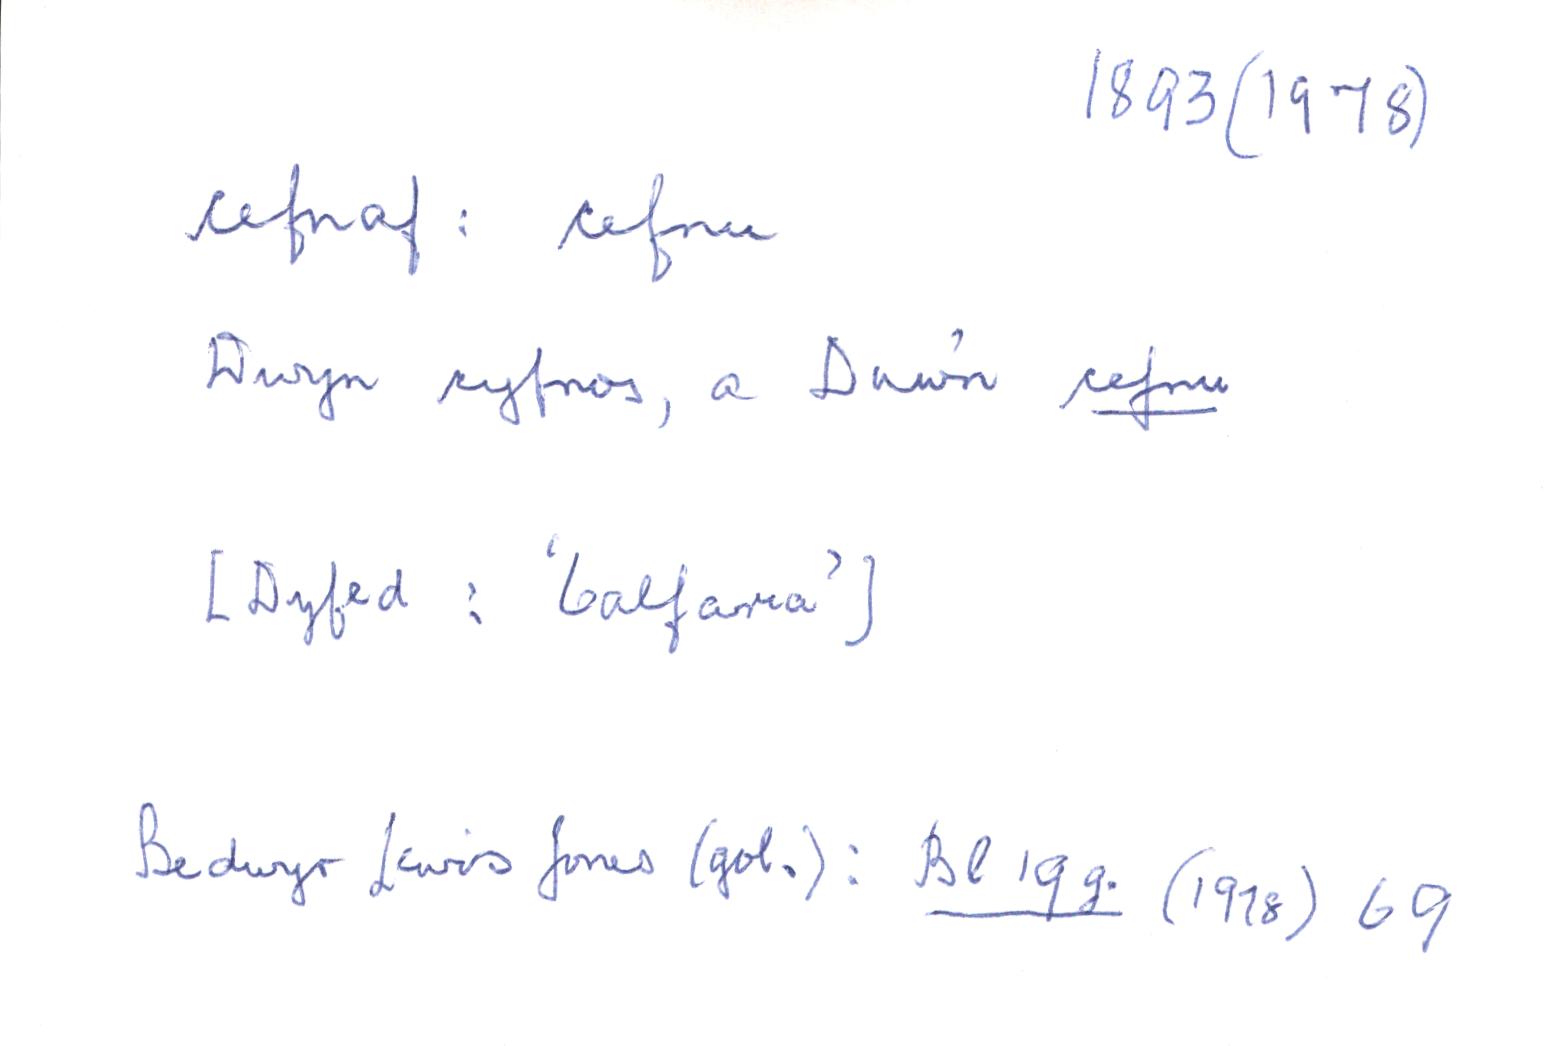 1893 (1978)
cefnaf : cefnu
Dwyn cyfnos, a Duw'n cefnu
[Dyfed : 'Calfaria']
Bedwyr Lewis Jones (gol.): Bl 19g. (1978) 69